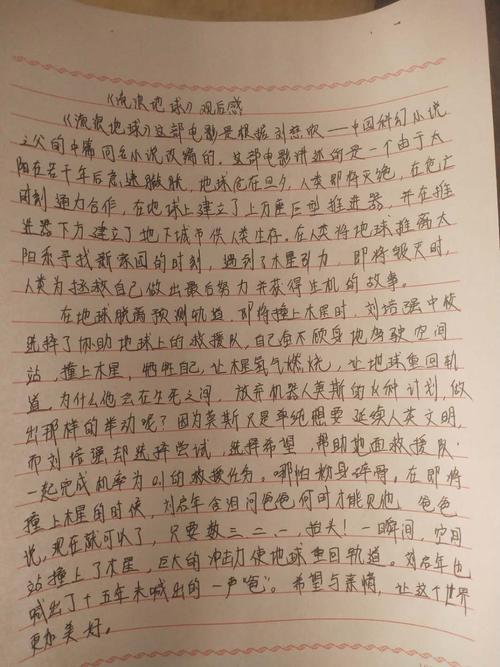 《流浪地球》观后感
《流浪地球》这部电影是根据刘慈欣——中国科幻小说
之父的中篇同名小说改编的。这部电影讲述的是一个由于太
阳在若干年后急速膨胀，地球危在旦夕，人类即将灭绝，在危亡
时刻通力合作，在地球上建立了上万座巨型推进器，并在推
进器下方建立了地下城市供人类生存。在人类将地球推离太
阳系寻找新家园的时刻，遇到了木星引力，即将毁灭时，
人类为拯救自己做出最后努力并获得生机的故事。
在地球脱离预测轨道，即将撞上木星时，刘培强中校
选择了协助地球上的救援队，自己奋不顾身地驾驶空间
站，撞上木星，牺牲自己，让木星氢气燃烧，让地球重回轨
道。为什么他会在生死之间，放弃机器人莫斯的火种计划，做
出那样的举动呢？因为莫斯只是单纯想要延续人类文明，
而刘培强却选择尝试，选择希望，帮助地面救援队
一起完成机率为0.1的救援任务。哪怕粉身碎骨。在即将
撞上木星的时候，刘启年含泪问爸爸何时才能见他，爸爸
说，现在就可以了，只要数三、二、一，抬头！一瞬间，空间
站撞上了木星，巨大的冲击力使地球重回轨道。刘启年也
喊出了十五年未喊出的一声“爸”。希望与亲情，让这个世界
更加美好。